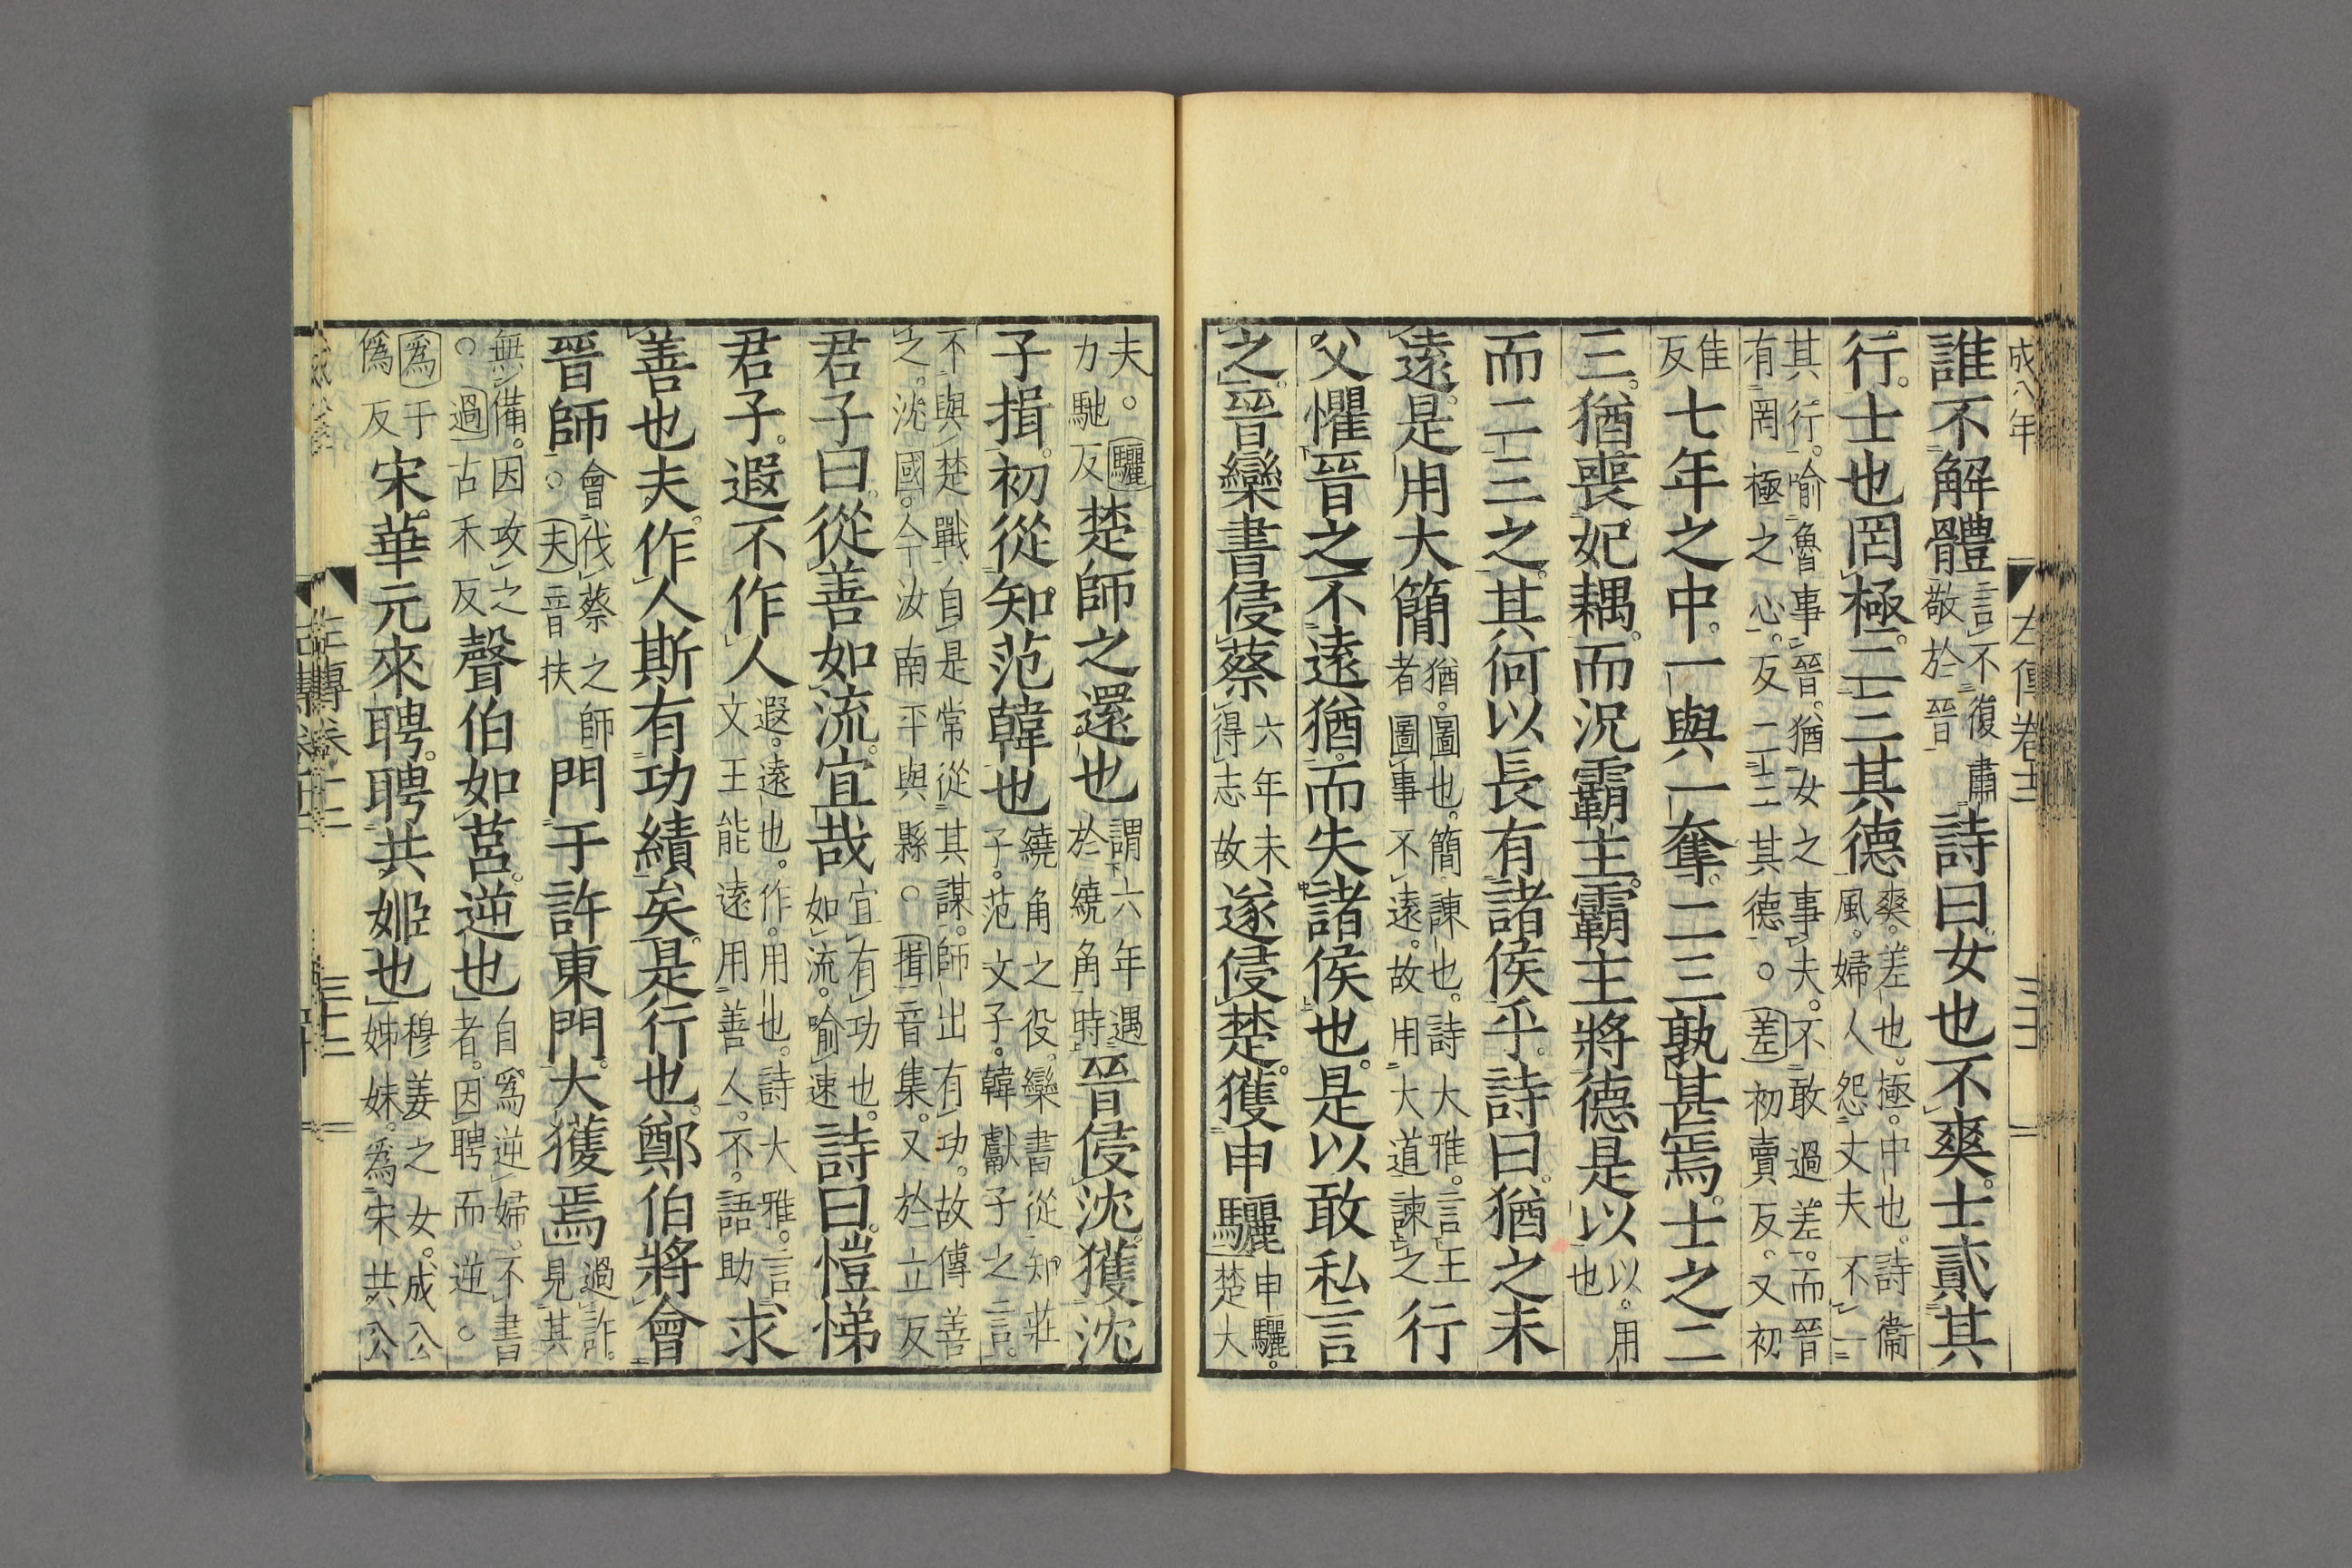 成八年　左傳卷十二　三十二
誰不解體言不復肅敬於晉詩曰。女也不爽。士貳其
行。士也罔極。二三其德爽。差也。極。中也。詩衞風。婦人怨丈夫不一
其行。喻魯事晉。猶女之事夫。不敢過差。而晉有罔極之心。反二三其德。○差初賣反。又初
隹反七年之中。一與一奪。二三孰甚焉。士之二
三。猶喪妃耦。而況霸主。霸主將德是以以。用也
而二三之。其何以長有諸侯乎。詩曰。猶之未
遠。是用大簡猶。圖也。簡。諫也。詩大雅。言王者圖事不遠。故用大道諫之行
父懼晉之不遠猶。而失諸侯也。是以敢私言
之。晉欒書侵蔡六年未得志故遂侵楚。獲申驪申驪。楚大
夫。驪力馳反楚師之還也謂六年遇於繞角時晉侵沈。獲沈
子揖。初從知范韓也繞角之役。欒書從知莊子。范文子。韓獻子之言。
不與楚戰自是常從其謀。師出有功。故傳善之。沈國。今汝南平與縣。○揖音集。又於立反
君子曰。從善如流。宜哉宜有功也。如流。喻速詩曰。愷悌
君子。遐不作人遐。遠也。作。用也。詩大雅。言文王能遠用善人。不。語助求
善也夫。作人斯有功績矣。是行也。鄭伯將會
晉師會伐蔡之師。○夫音扶門于許東門。大獲焉過許。見其
無備。因攻之。○過古禾反聲伯如莒。逆也自爲逆婦。不書者。因聘而逆。○
爲于僞反宋華元來聘。聘共姬也穆姜之女。成公姊妹。爲宋共公
左傳卷十二　三十二